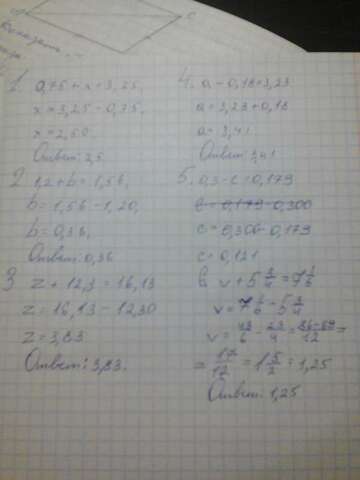 C
1. 0,75 + x = 3,25,
x = 3,25 - 0,75,
x = 2,50.
Ответ: 2,5
2. 1,2 + b = 1,56,
b = 1,56 - 1,20,
b = 0,36,
Ответ: 0,36
3 z + 12,3 = 16,13
z = 16,13 - 12,30
z = 3,83
Ответ: 3,83.
4. a - 0,18 = 3,23
a = 3,23 + 0,18
a = 3,41
Ответ: 3,41
5. 0,3 - c = 0,179
c = 0,179 - 0,300
c = 0,300 - 0,179
c = 0,121
v + 5 3/4 = 7 1/6
v = 7 1/6 - 5 3/4
v = 43/6 - 23/4 = 86-69/12 =
= 17/12 = 1 5/12 = 1,25
Ответ: 1,25